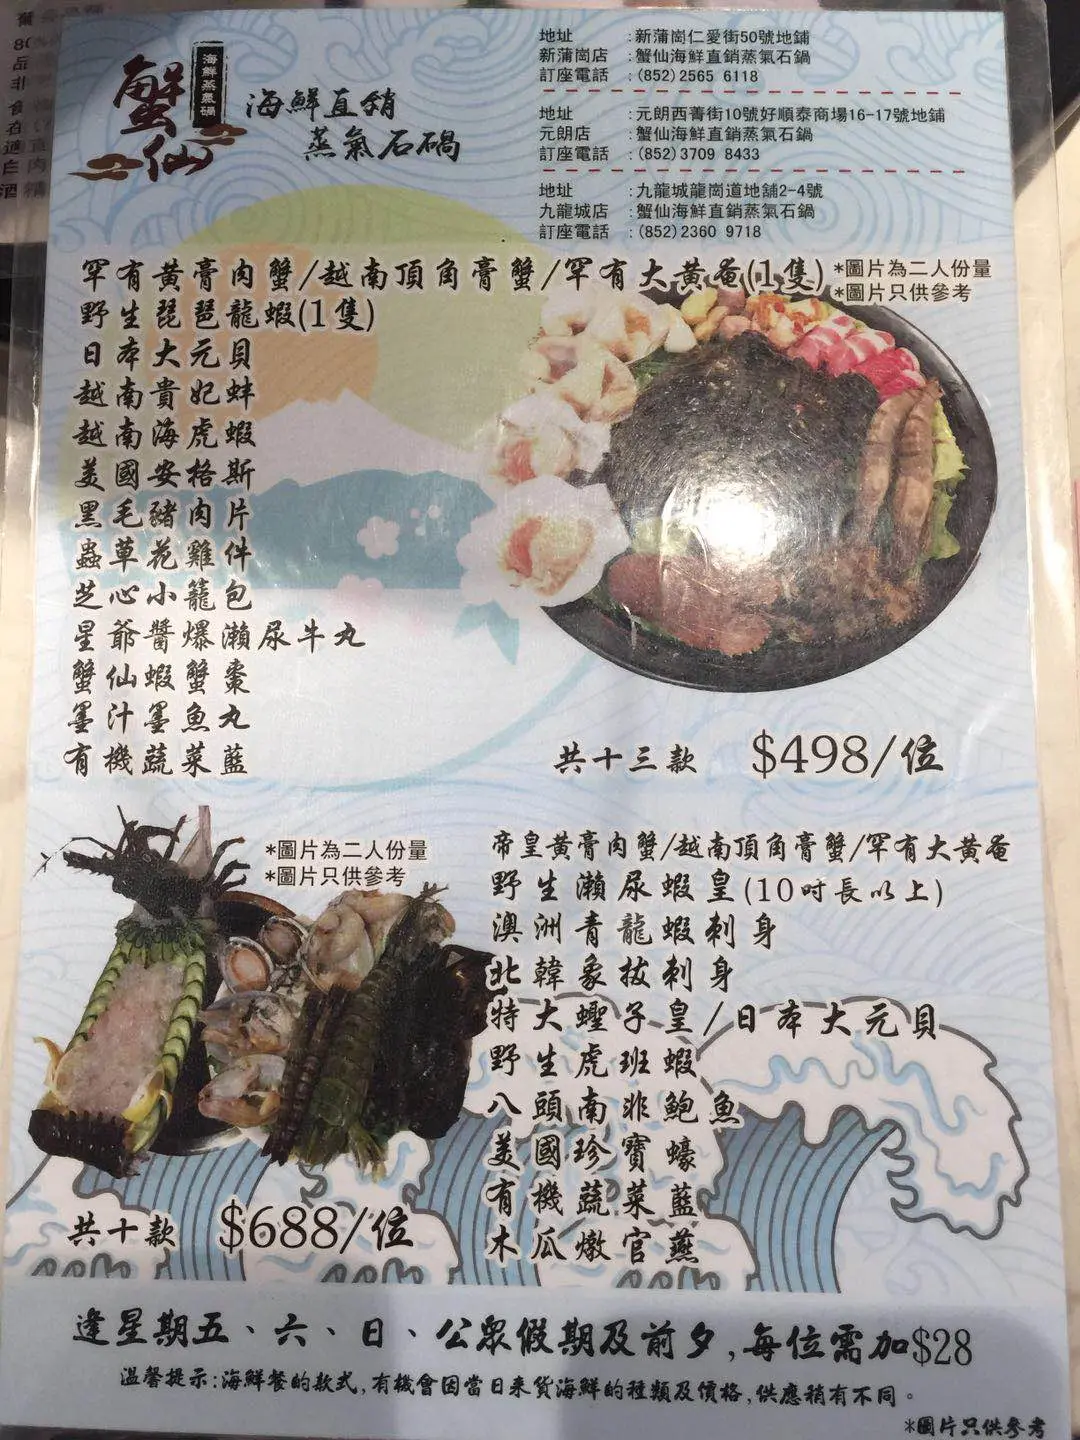 蟹仙
海鮮蒸氣鍋
海鮮直銷
蒸氣石鍋
地址 :新蒲崗仁愛街50號地鋪
新蒲崗店 :蟹仙海鮮直銷蒸氣石鍋
訂座電話 :(852)2565 6118
地址 :元朗西菁街10號好順泰商場16-17號地鋪
元朗店 :蟹仙海鮮直銷蒸氣石鍋
訂座電話 :(852)3709 8433
地址 :九龍城龍崗道地舖2-4號
九龍城店 :蟹仙海鮮直銷蒸氣石鍋
訂座電話 :(852)2360 9718
罕有黃膏肉蟹/越南頂角膏蟹/罕有大黃奄(1隻)
*圖片為二人份量
*圖片只供參考
野生琵琶龍蝦(1隻)
日本大元貝
越南貴妃蚌
越南海虎蝦
美國安格斯
黑毛豬肉片
蟲草花雞件
芝心小籠包
星爺醬爆瀨尿牛丸
蟹仙蝦蟹棗
墨汁墨魚丸
有機蔬菜藍
共十三款 $498/位
*圖片為二人份量
*圖片只供參考
帝皇黃膏肉蟹/越南頂角膏蟹/罕有大黃奄
野生瀨尿蝦皇(10吋長以上)
澳洲青龍蝦刺身
北韓象拔刺身
特大蟶子皇/日本大元貝
野生虎班蝦
八頭南非鮑魚
美國珍寶蠔
有機蔬菜藍
木瓜燉官燕
共十款 $688/位
逢星期五、六、日、公眾假期及前夕,每位需加$28
溫馨提示:海鮮餐的款式,有機會因當日來貨海鮮的種類及價格,供應稍有不同。
*圖片只供參考